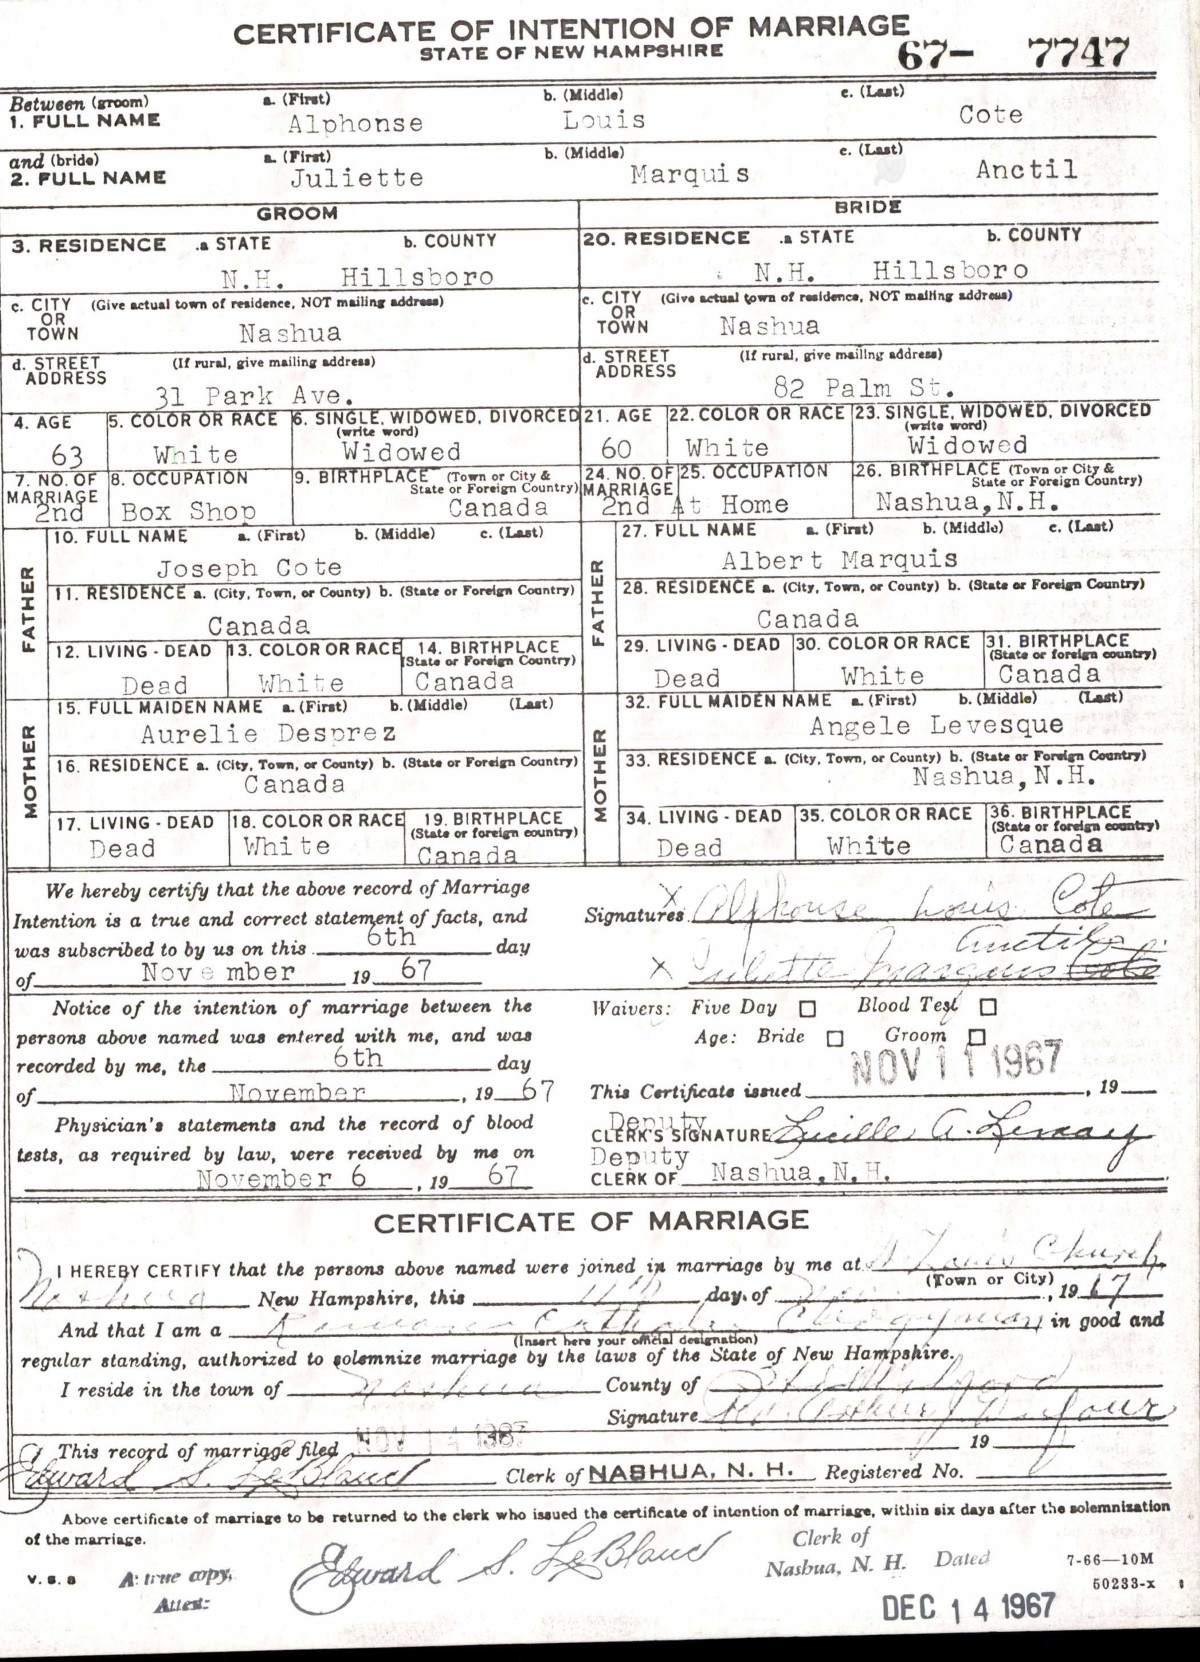 CERTIFICATE OF INTENTION OF MARRIAGE
STATE OF NEW HAMPSHIRE
67- 7747
Between (groom) a. (First) b. (Middle) c. (Last)
1. FULL NAME Alphonse Louis Cote
and (bride) a. (First) b. (Middle) c. (Last)
2. FULL NAME Juliette Marquis Anctil
GROOM BRIDE
3. RESIDENCE .a STATE b. COUNTY 20. RESIDENCE .a STATE b. COUNTY
N.H. Hillsboro N.H. Hillsboro
c. CITY (Give actual town of residence, NOT mailing address) c. CITY (Give actual town of residence, NOT mailing address)
OR OR
TOWN Nashua TOWN Nashua
d. STREET (If rural, give mailing address) d. STREET (If rural, give mailing address)
ADDRESS ADDRESS
31 Park Ave. 82 Palm St.
4. AGE 5. COLOR OR RACE 6. SINGLE, WIDOWED, DIVORCED 21. AGE 22. COLOR OR RACE 23. SINGLE, WIDOWED, DIVORCED
(write word) (write word)
63 White Widowed 60 White Widowed
7. NO. OF 8. OCCUPATION 9. BIRTHPLACE (Town or City & 24. NO. OF 25. OCCUPATION 26. BIRTHPLACE (Town or City &
MARRIAGE State or Foreign Country) MARRIAGE State or Foreign Country)
2nd Box Shop Canada 2nd At Home Nashua, N.H.
FATHER 10. FULL NAME a. (First) b. (Middle) c. (Last) FATHER 27. FULL NAME a. (First) b. (Middle) c. (Last)
Joseph Cote Albert Marquis
11. RESIDENCE a. (City, Town, or County) b. (State or Foreign Country) 28. RESIDENCE a. (City, Town, or County) b. (State or Foreign Country)
Canada Canada
12. LIVING - DEAD 13. COLOR OR RACE 14. BIRTHPLACE 29. LIVING - DEAD 30. COLOR OR RACE 31. BIRTHPLACE
(State or Foreign Country) (State or foreign country)
Dead White Canada Dead White Canada
MOTHER 15. FULL MAIDEN NAME a. (First) b. (Middle) (Last) MOTHER 32. FULL MAIDEN NAME a. (First) b. (Middle) (Last)
Aurelie Desprez Angele Levesque
16. RESIDENCE a. (City, Town, or County) b. (State or Foreign Country) 33. RESIDENCE a. (City, Town, or County) b. (State or Foreign Country)
Canada Nashua, N.H.
17. LIVING - DEAD 18. COLOR OR RACE 19. BIRTHPLACE 34. LIVING - DEAD 35. COLOR OR RACE 36. BIRTHPLACE
(State or foreign country) (State or foreign country)
Dead White Canada Dead White Canada
We hereby certify that the above record of Marriage
Intention is a true and correct statement of facts, and
was subscribed to by us on this 6th day
of November 19 67
Signatures X Alphonse Louis Cote
Anctil
X Juliette Marquis Cote
Notice of the intention of marriage between the
persons above named was entered with me, and was
recorded by me, the 6th day
of November, 19 67
Waivers: Five Day □ Blood Test □
Age: Bride □ Groom □
NOV 11 1967
This Certificate issued , 19
Physician's statements and the record of blood
tests, as required by law, were received by me on
November 6, 19 67
Deputy
CLERK'S SIGNATURE Lucille A. Lemay
Deputy
CLERK OF Nashua, N.H.
CERTIFICATE OF MARRIAGE
I HEREBY CERTIFY that the persons above named were joined in marriage by me at St Louis Church
(Town or City)
Nashua New Hampshire, this 11th day of Nov , 19 67
And that I am a Roman Catholic Clergyman in good and
(Insert here your official designation)
regular standing, authorized to solemnize marriage by the laws of the State of New Hampshire.
I reside in the town of Nashua County of
Signature Rev. Arthur J Dufour
This record of marriage filed NOV 14 1967 19
Edward S. LeBlanc Clerk of NASHUA, N. H. Registered No.
Above certificate of marriage to be returned to the clerk who issued the certificate of intention of marriage, within six days after the solemnization
of the marriage.
V. S. 8 A true copy, Attest: Edward S. LeBlanc Clerk of
Nashua, N. H. Dated
7-66—10M
50233-x
DEC 14 1967